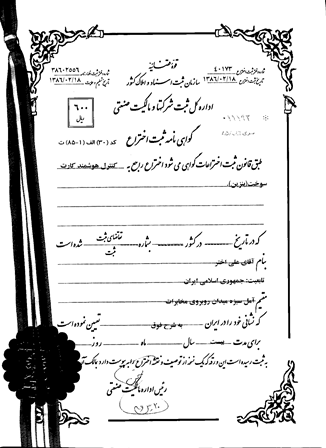 قوه قضائیه
شماره ثبت اختراع: ۴۰۱۷۳
تاریخ ثبت اختراع: ۱۳۸۶/۰۲/۱۸
شماره ثبت اظهارنامه: ۳۸۶۰۲۵۵۶
۱۳۸۶/۰۲/۱۸
سازمان ثبت اسناد و املاک کشور
اداره کل ثبت شرکتها و مالکیت صنعتی
۶۰۰
ریال
گواهی نامه ثبت اختراع
کد (۳۰) الف (۱-۸۵) ت
طبق قانون ثبت اختراعات گواهی می شود اختراع راجع به کنترل هوشمند کارت
سوخت(بنزین).
که در تاریخ در کشور بشماره تقاضای ثبت شده است
ثبت
بنام آقای علی اختر
تابعیت: جمهوری اسلامی ایران
مقیم آمل سبزه میدان روبروی مخابرات
که نشانی خود را در ایران به شرح فوق تعیین نموده است
برای مدت بیست سال ماه روز
به ثبت رسیده است این ورقه که یک نسخه از توصیف و نقشه اختراع را به پیوست دارد به مالک آن
رئیس اداره مالکیت صنعتی